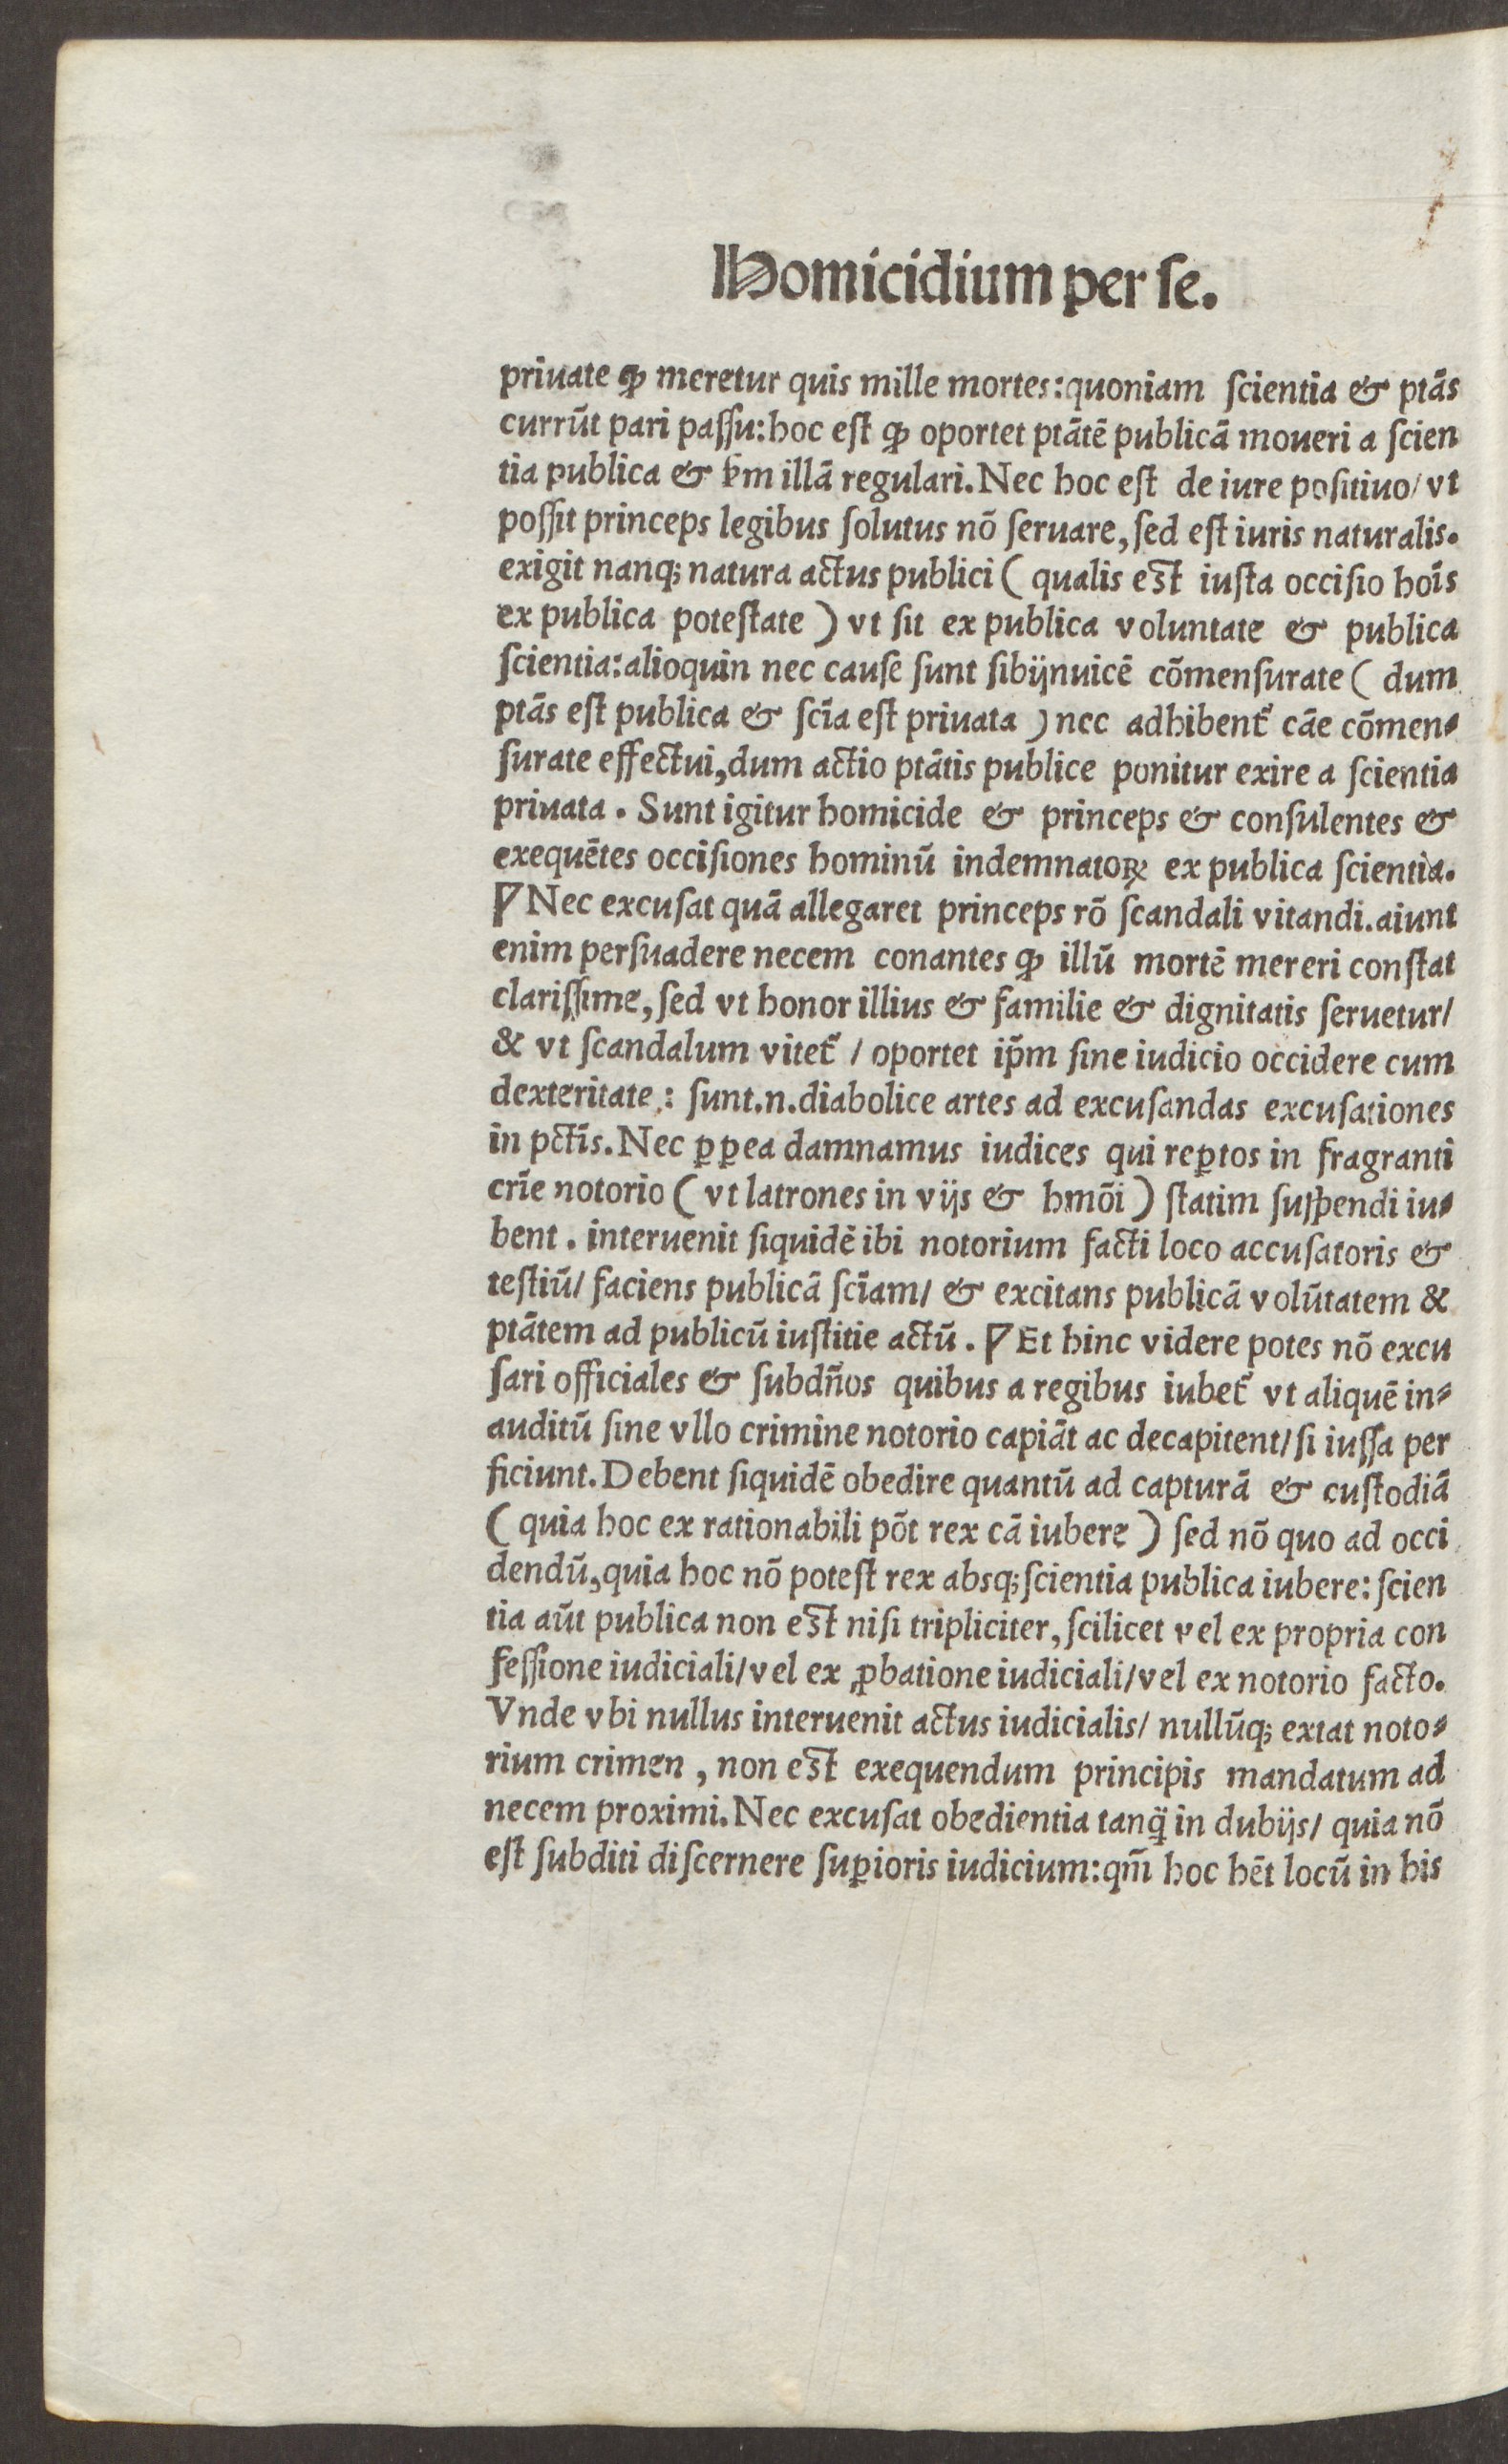 Homicidium per se.
priuate ꝙ meretur quis mille mortes:quoniam ſcientia & ptãs
currũt pari paſſu:hoc eſt ꝙ oportet ptãtẽ publicã moueri a ſcien
tia publica & ẜm illã regulari.Nec hoc eſt de iure poſitiuo/vt
poſſit princeps legibus ſolutus nõ ſeruare,ſed eſt iuris naturalis.
exigit nanq; natura actus publici (qualis est iuſta occiſio hoĩs
ex publica poteſtate) vt ſit ex publica voluntate & publica
ſcientia:alioquin nec cauſe ſunt ſibijnuicẽ cõmenſurate (dum
ptãs eſt publica & ſcĩa eſt priuata) nec adhibent᷑ cãe cõmen⸗
ſurate effectui,dum actio ptãtis publice ponitur exire a ſcientia
priuata. Sunt igitur homicide & princeps & conſulentes &
exequẽtes occiſiones hominũ indemnatoꝝ ex publica ſcientia.
¶ Nec excuſat quã allegaret princeps rõ ſcandali vitandi.aiunt
enim perſuadere necem conantes ꝙ illũ mortẽ mereri conſtat
clariſſime,ſed vt honor illius & familie & dignitatis ſeruetur/
& vt ſcandalum vitet᷑ / oportet ip̃m ſine iudicio occidere cum
dexteritate: ſunt.n.diabolice artes ad excuſandas excuſationes
in pctĩs.Nec ꝓꝑea damnamus iudices qui reꝑtos in fragranti
crĩe notorio (vt latrones in vijs & hmõi) ſtatim ſuſpendi iu⸗
bent. interuenit ſiquidẽ ibi notorium facti loco accuſatoris &
teſtiũ/ faciens publicã ſcĩam/ & excitans publicã volũtatem &
ptãtem ad publicũ iuſtitie actũ. ¶ Et hinc videre potes nõ excu
ſari officiales & ſubdño​s quibus a regibus iubet᷑ vt aliquẽ in⸗
auditũ ſine vllo crimine notorio capiãt ac decapitent/ſi iuſſa per
ficiunt.Debent ſiquidẽ obedire quantũ ad capturã & cuſtodiã
(quia hoc ex rationabili põt rex cã iubere) ſed nõ quo ad occi
dendũ,quia hoc nõ poteſt rex absq; ſcientia publica iubere: ſcien
tia aũt publica non est niſi tripliciter,ſcilicet vel ex propria con
feſſione iudiciali/vel ex ꝓbatione iudiciali/vel ex notorio facto.
Vnde vbi nullus interuenit actus iudicialis/ nullũq; extat noto⸗
rium crimen, non est exequendum principis mandatum ad
necem proximi.Nec excuſat obedientia tanq̃ in dubijs/ quia nõ
eſt ſubditi diſcernere ſuꝑioris iudicium:qm̃ hoc hẽt locũ in his